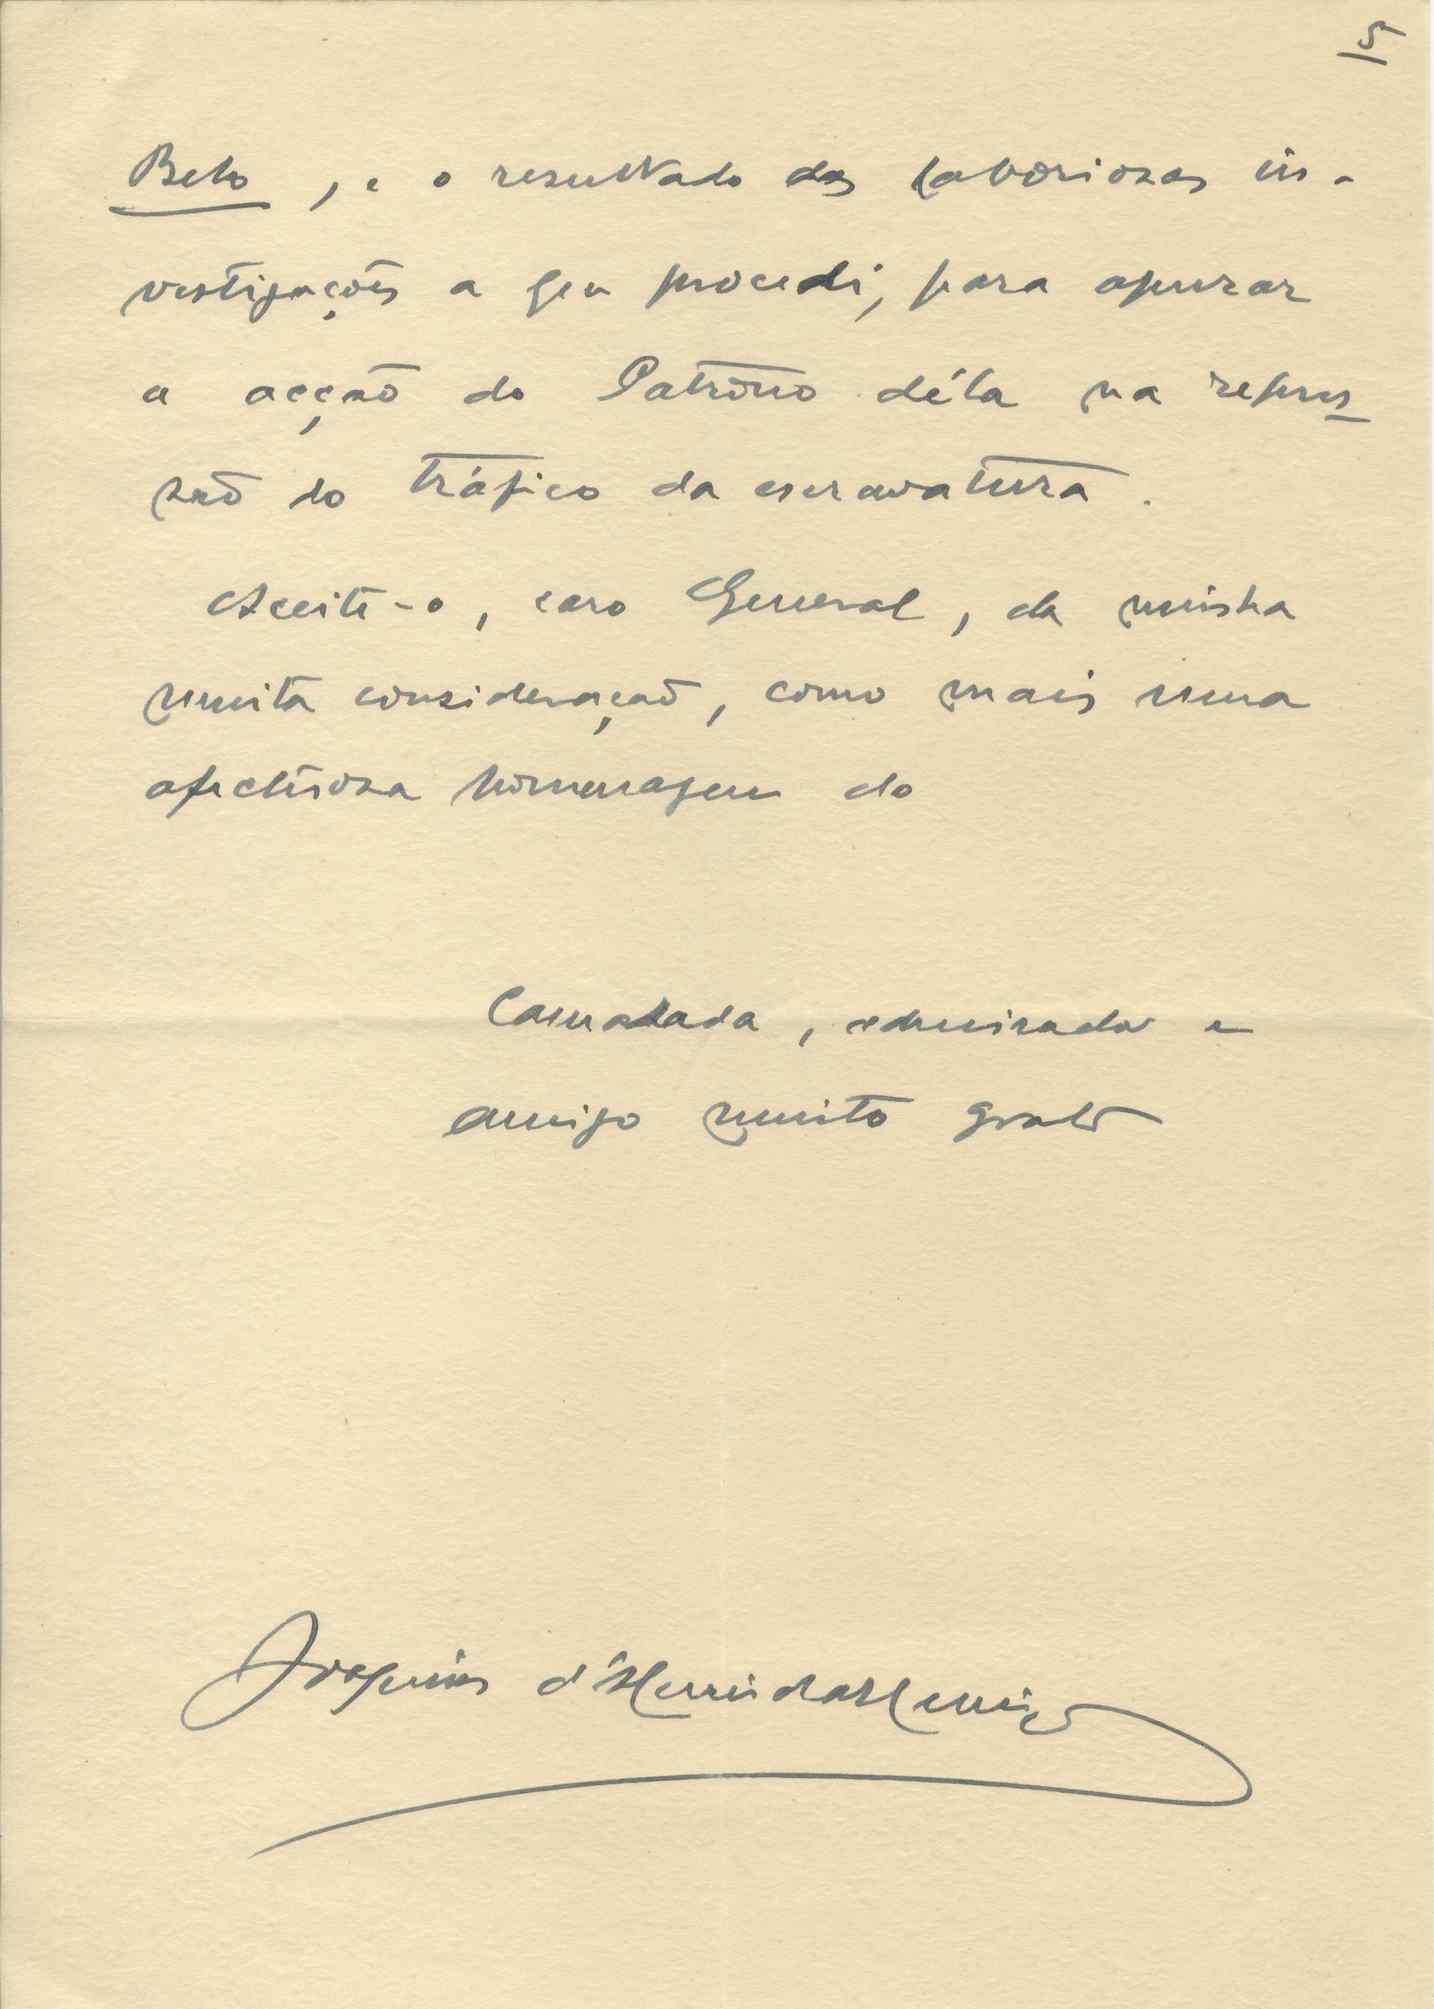 5
Belo, e o resultado das laboriosas in-
vestigações a que procedi, para apurar
a acção do Patrôno déla na repres
são do tráfico da escravatura.
Aceite-o, caro General, da minha
muita consideração, como mais uma
afectuosa homenagem do
Camarada, admirador e
amigo muito grato
Joaquim d'